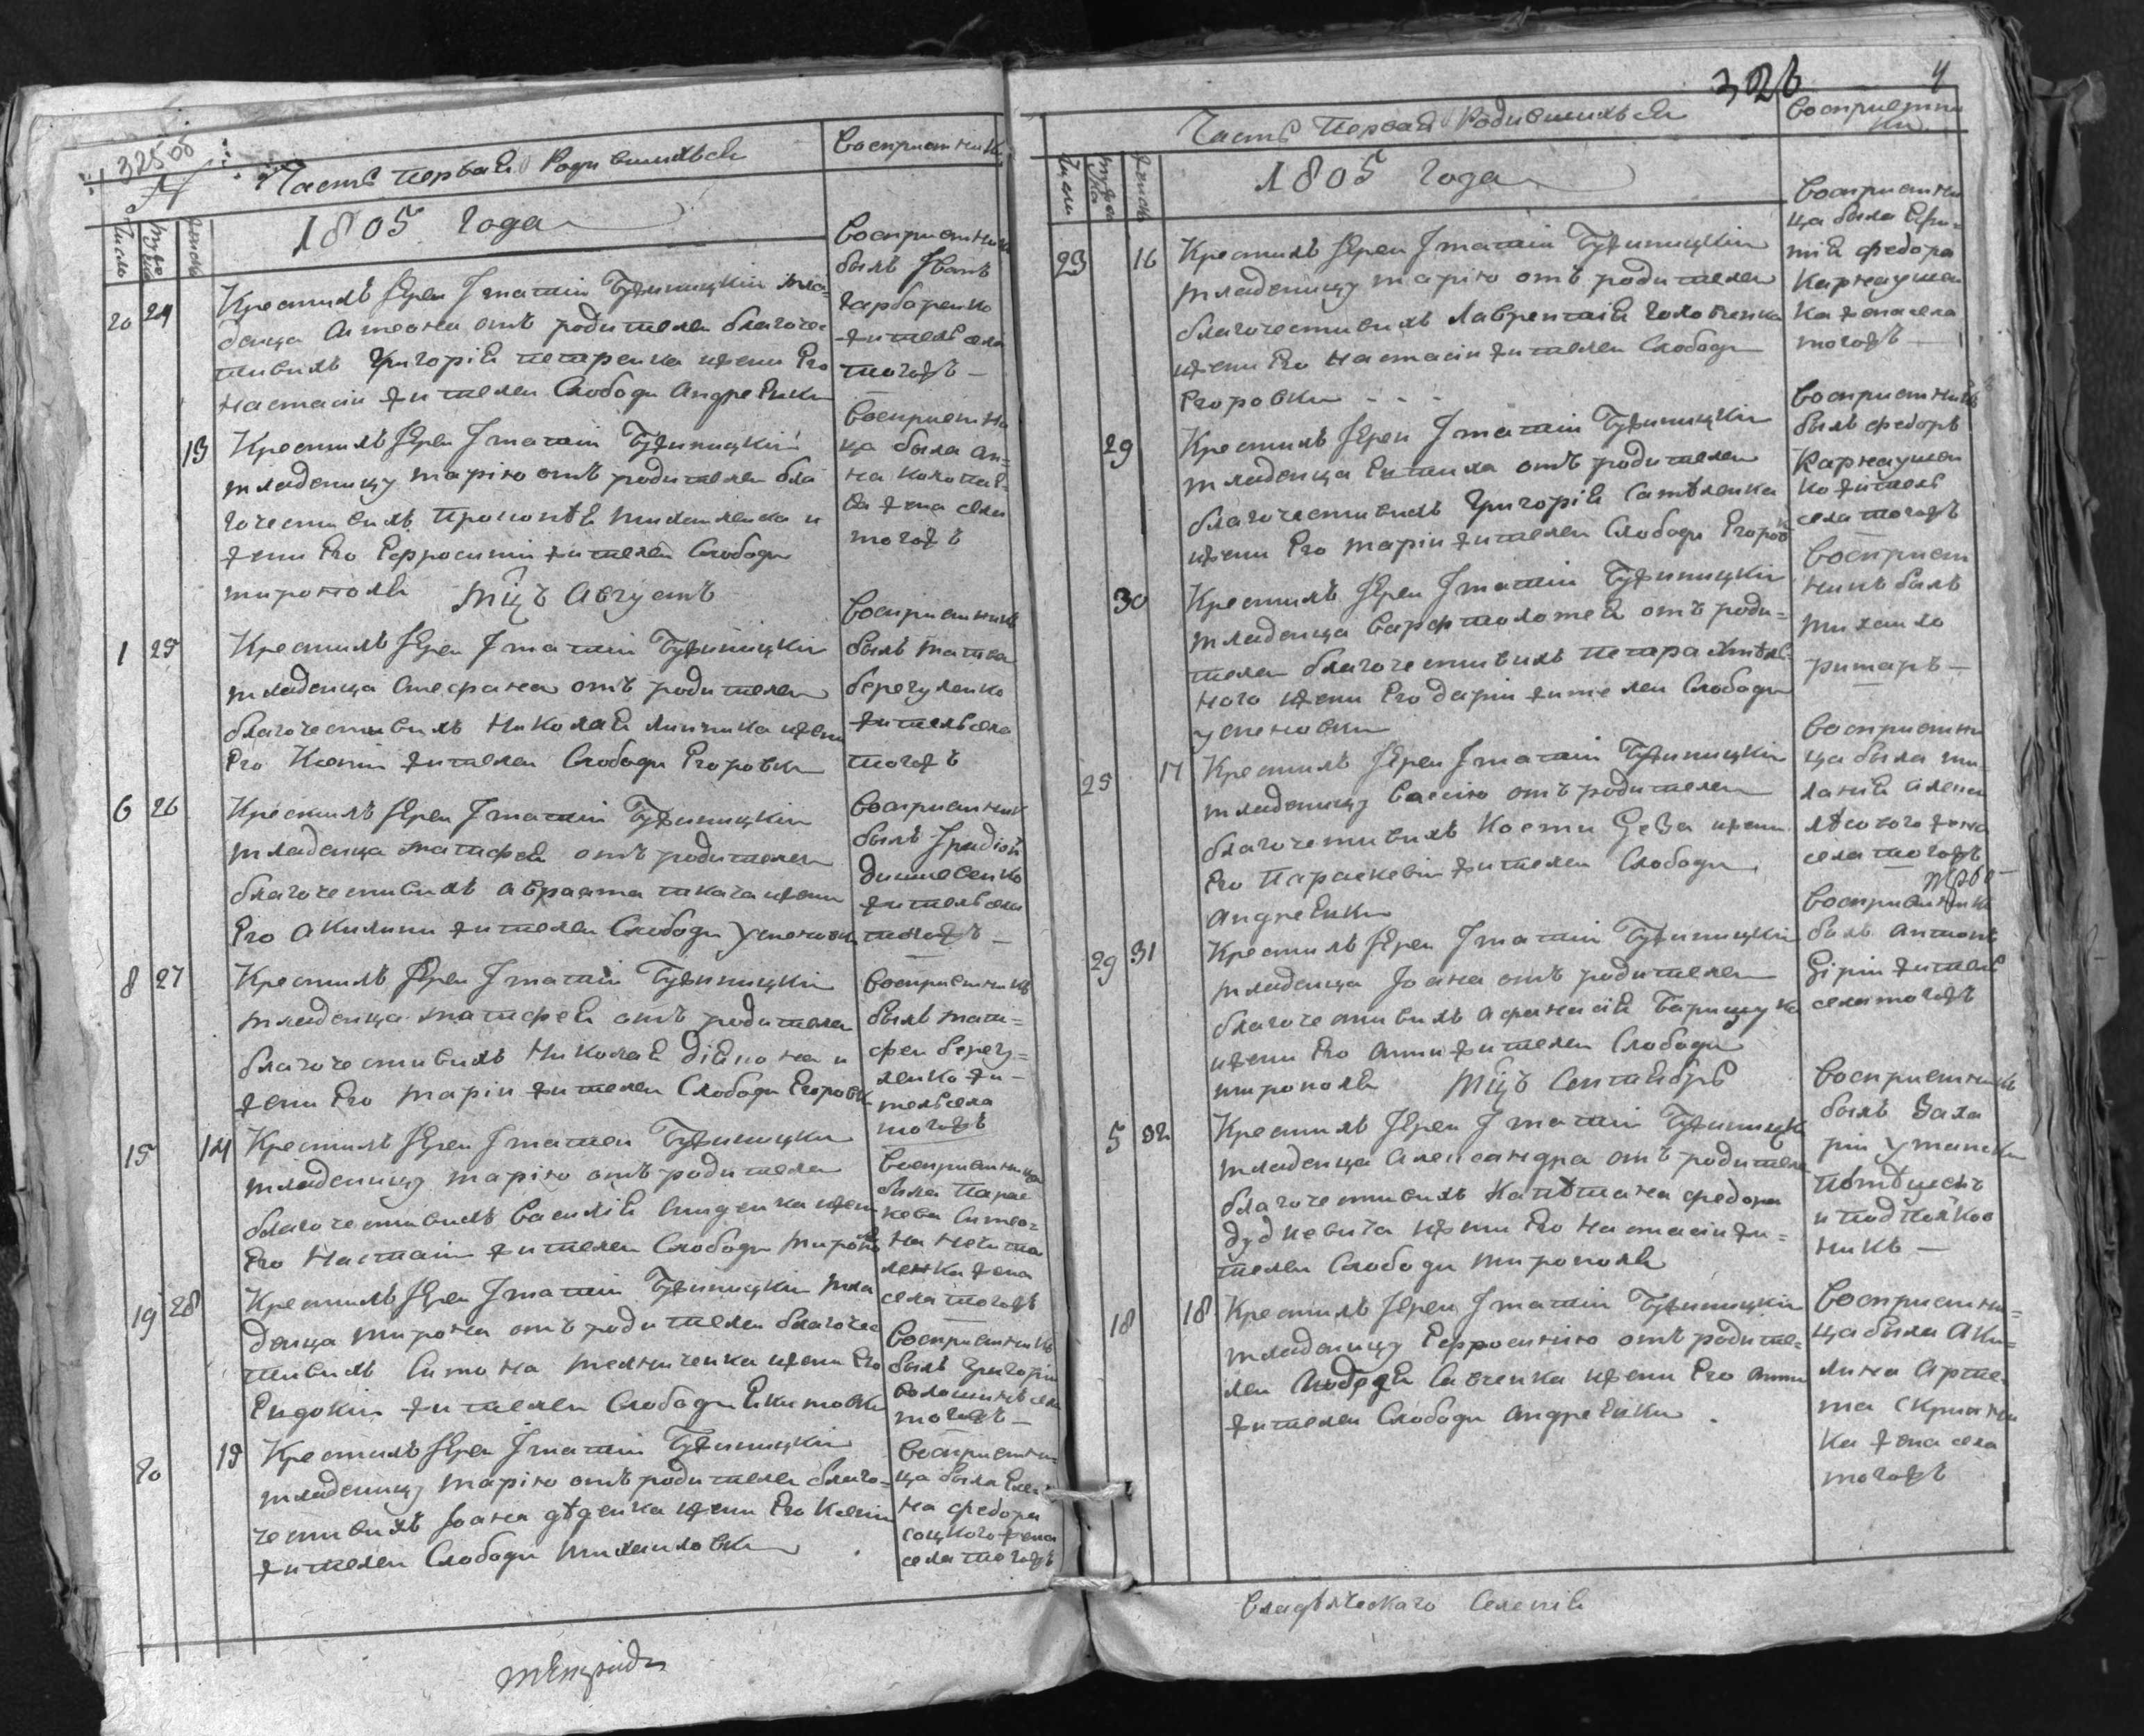 325 об
Часть первая Родившихся
Восприемники
Число
мужеска
женска
1805 Года
20 24 Крестилъ Іерей Игнатій Бужиницкій мла-
денца Симеона отъ родителей благочес
тивихъ Григорія петренка ижени Его
Настасіи жителей Слободи Андреевки
Восприемникъ
былъ Иванъ
Гарбаренко
житель села
тогожъ —
13 Крестилъ Іерей Игнатій Бужиницкій
младеницу марію отъ родителей бла
гочестивихъ Прокопія михайленка и
жени Его Ефросинии жителей Слободи
мирополя
Восприемни
ца была ан-
на
жена села
тогожъ
мцъ Августъ
1 25 Крестилъ Іерей Игнатій Бужиницкій
младенца Стефана отъ родителей
благочестивихъ Николая Линника ижени
Его Ксеніи жителей Слободи Егоровки
Восприемникъ
былъ матвей
берегуленко
житель села
тогожъ
6 26 Крестилъ Іерей Игнатій Бужиницкій
младенца матфея отъ родителей
благочестивихъ Авраама ткача ижени
Его Акилини жителей Слободи Успеновки
Восприемникъ
былъ Иродіон
Дишевенко
житель села
тогожъ —
8 27 Крестилъ Іерей Игнатій Бужиницкій
младенца матфея отъ родителей
благочестивихъ Николая Діякона и
жени Его маріи жителей Слободи Егоровки
Восприемникъ
былъ мат-
фей берегу-
ленко жи-
тель села
тогожъ
15 14 Крестилъ Іерей Игнатій Бужиницкій
младеницу марію отъ родителей
благочестивихъ Василія ижени
Его Настасіи жителей Слободи мирополя
Восприемница
была Парас
кева Симео-
на
ленка жена
села тогожъ
19 28 Крестилъ Іерей Игнатій Бужиницкій мла
денца мирона отъ родителей благочес
тивихъ Симона мелниченка ижени Его
Евдокіи жителей Слободи Екимовки
Восприемникъ
былъ Григорій
Волошинъ села
тогожъ —
20 15 Крестилъ Іерей Игнатій Бужиницкій
младеницу марію отъ родителей благо-
честивихъ Іоана дяденка ижени Его Ксеніи
жителей Слободи михайловки
Восприемни
ца была Еле-
на федора
соцкого жена
села тогожъ
326
4
Часть Первая Родившихься
Восприемни
ки
Число
мужеска
женска
1805 Года
23 16 Крестилъ Іерей Игнатій Бужиницкій
младеницу марію отъ родителей
благочестивихъ Лаврентія Головченка
ижени Его Настасіи жителей Слободи
Егоровки - - -
Восприемни
ца была Ефи-
мія федора
Карнаушен
ка жена села
тогожъ —
29 Крестилъ Іерей Игнатій Бужиницкій
младенца отъ родителей
благочестивихъ Григорія Самъленка
ижени Его маріи жителей Слободи Егоров
Восприемникъ
былъ федоръ
Карнаушен
ко житель
села тогожъ
30 Крестилъ Іерей Игнатій Бужиницкій
младенца Варфтоломея отъ роди-
телей благочестивихъ петра Хмѣль-
ного ижени Его Даріи жителей Слободи
успеновки
Восприем
никъ былъ
михаило
ритаръ —
25 17 Крестилъ Іерей Игнатій Бужиницкій
младеницу Васsію отъ родителей
благочетивихъ Косми ижени
Его Параскевіи жителей Слободи
Андреевки
Восприемни
ца была ми-
ланія
лѣсового жена
села тогожъ
29 31 Крестилъ Іерей Игнатій Бужиницкій
младенца Іоана отъ родителей
благочестивихъ Афанасія Барищука
ижени Его Анни жителей Слободи
мирополя
Восприемникъ
былъ Антонъ
житель
села тогожъ
мцъ Сентябръ
5 32 Крестилъ Іерей Игнатій Бужиницкій
младенца Александра отъ родителей
благочестивихъ Капѣтана федора
Дудкевича ижени Его Настасіи жи-
телей Слободи мирополя
Восприемникъ
былъ Заха
рій Уманский
и подполков
никъ —
18 18 Крестилъ Іерей Игнатій Бужиницкій
младеницу Ефросинию отъ родите-
лей Савченка ижени Его Анни
жителей Слободи Андреевки
Восприемни-
ца была Аки-
лина Арте
ма Скрипчен
ка жена села
тогожъ
Владѣлческаго Селенія